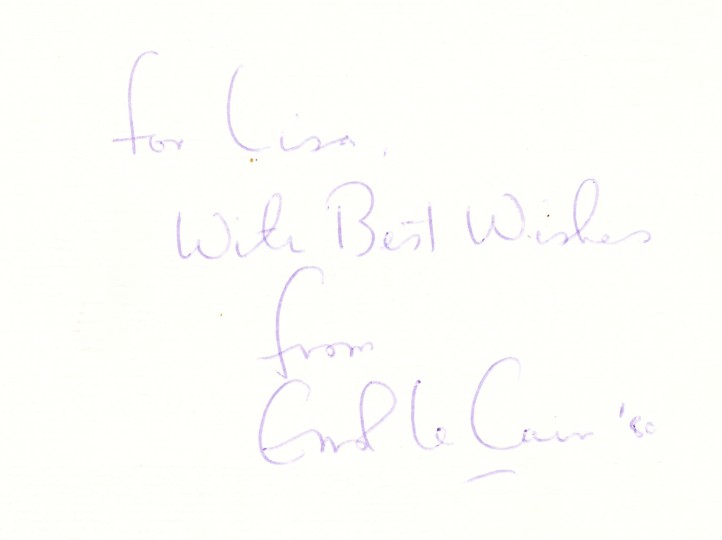 for Lisa.
With Best Wishes
from
Errol le Cain '80